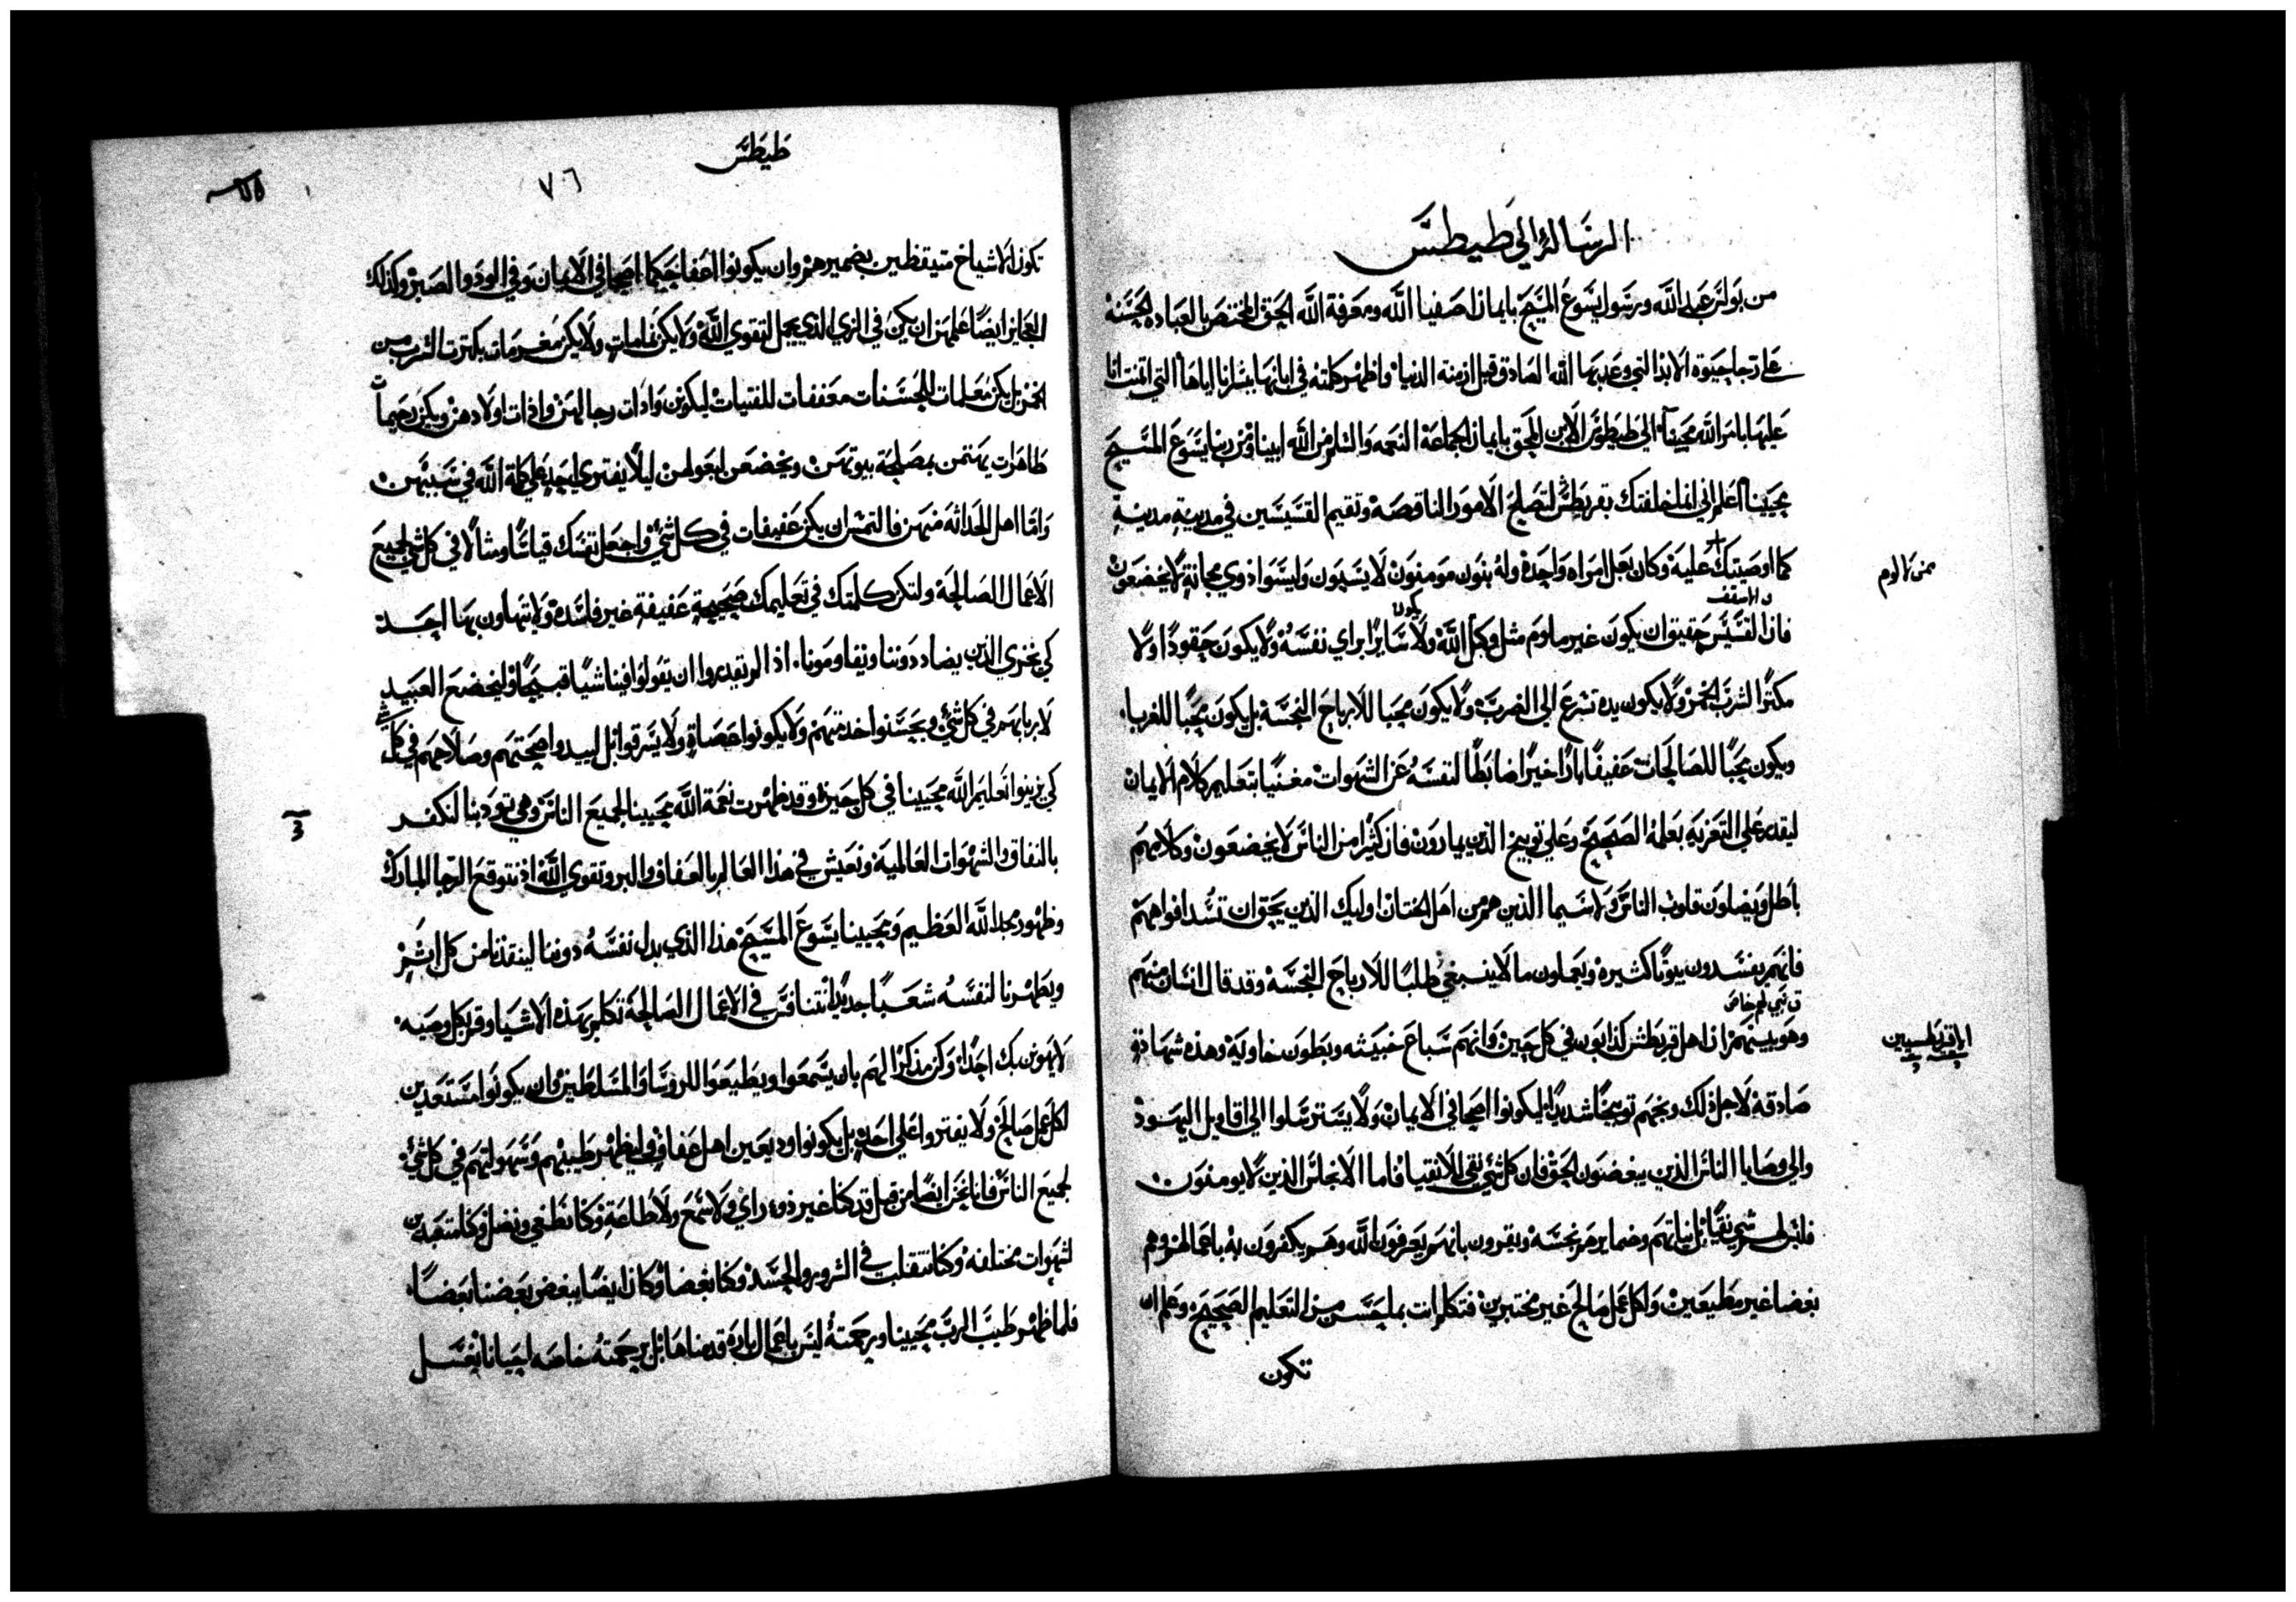 الرسالة الي طيطس
من بولس عبد الله ورسول يسوع المسيح بايمان اصفيا الله ومعرفة الله الحق المختص بالعباده الحسنه
علي رجا حيوه الابد التي وعد بها الله الصادق قبل ازمنة الدنيا واظهر كلمته في ابانها ببشرانا اياها التي اتمنت انا
عليها بامر الله محيينا الي طيطوس الابن المحق بايمان الجماعة النعمه والسلم من الله ابينا ومن ربنا يسوع المسيح
محيينا اعلم اني انما خلفتك بقريطس لتصلح الامور الناقصه وتقيم القسيسين في مدينة مدينة
كما اوصيتك عليه وكان بعل امراه واحدة وله بنون مومنون لا يسبون وليسوا ذوي مجانة لا يخضعون
من لا لوم
والاسقف
فان القسيس حقيق ان يكون غير ملوم مثل وكيل الله ولا يكون سايرا براي نفسه ولا يكون حقودا ولا
مكثرا لشرب الخمر ولا يكون يده تسرع الي الضرب ولا يكون محبا للارباح النجسة بل يكون محبا للغربا
ويكون محبا للصالحات عفيفا بارا خيرا ضابطا لنفسه عن الشهوات معنيا بتعليم كلام الايمان
ليقدر علي التعزيه بعلمه الصحيح وعلي توبيخ الذين يمارون فان كثيرا من الناس لا يخضعون وكلامهم
باطل ويضلون قلوب الناس ولا سيما الذين هم من اهل الختان اوليك الذين يحق ان تسد افواههم
فانهم يفسدون بيوتا كثيرة ويعملون ما لا ينبغي طلبا للارباح النجسة وقد قال انسان منهم
ق نبي لهم خاص
وهو بينهم ان اهل قريطش كذابون في كل حين وانهم سباع خبيثه وبطون خاوية وهذه شهادة
صادقة لاجل ذلك وبخهم توبيخا شديدا ليكونوا اصحا في الايمان ولا يسترسلوا الي اقاويل اليهود
والي وصايا الناس الذين يبغضون الحق فان كل شي نقي للانقيا فاما الانجاس الذين لا يومنون
فليس لهم شي نقيا بل نياتهم وضمايرهم نجسة ويقرون بانهم يعرفون الله وهم يكفرون به باعمالهم وهم
بغضا غير مطيعين ولكل عمل صالح غير مختبرين فتكلم انت بما يحسن من التعليم الصحيح وعلم ان
تكون
طيطس
٧٦
تكون الاشياخ متيقظين بضميرهم وان يكونوا اعفا حكما اصحا في الايمان وفي الود والصبر وكذلك
العجايز ايضا علمهن ان يكن في الزي الذي يجمل لتقوي الله ولا يكن نمامات ولا يكن مغرمات بكثرت الشرب من
الخمر بل يكن معلمات للحسنات معففات للفتيات ليكون وادات رجالهن وادات اولادهن ويكن رحيمات
طاهرات يهتمن بمصلحة بيوتهن ويخضعن لبعولهن ليلا يفتري احد علي كلمة الله في سببهن
واما اهل الحداثة منهن فالتمس ان يكن عفيفات في كل شي واجعل نفسك قياسا ومثالا في كل شي لجميع
الاعمال الصالحة ولتكن كلمتك في تعليمك صحيحة عفيفة غير فاسدة ولا يتهاون بها احد
كي يخزي الذين يضاددوننا ويقاومونا اذا لم يقدروا ان يقولوا فينا شيا قبيحا وليخضع العبيد
لاربابهم في كل شي ويحسنوا خدمتهم ولا يكونوا عصاة ولا يسرقوا بل ليبدوا صحتهم وصلاحهم في كل شي
كي يزينوا تعليم الله محيينا في كل حين وقد ظهرت نعمة الله محيينا لجميع الناس وهي تودبنا لنكفر
بالنفاق والشهوات العالمية ونعيش في هذا العالم بالعفاف والبر وتقوي الله اذ نتوقع الرجا المبارك
وظهور مجد الله العظيم ومحيينا يسوع المسيح هذا الذي بدل نفسه دوننا لينقذنا من كل اثم
ويطهرنا لنفسه شعبا جديدا نتنافس في الاعمال الصالحة تكلم بهذه الاشيا وقر بكل وصيه
لا يهون بك احدا وكن مذكرا لهم بان يسمعوا ويطيعوا للروسا والمسلطين وان يكونوا مستعدين
لكل عمل صالح ولا يفتروا علي احد بل يكونوا وديعين اهل عفاف وليظهر طيبهم وسهولتهم في كل شي
لجميع الناس فانا نحن ايضا من قبل قد كنا غير ذوي راي ولا سمع ولا طاعة وكنا نطغي ونضل وكنا متعبدين
لشهوات مختلفه وكنا نتقلب في الشرور والحسد وكنا بغضا وكان ايضا يبغض بعضنا بعضا
فلما ظهر طيب الرب محيينا ورحمته ليس باعمال بارة قدمناها بل برحمته خاصه احيانا بغسل